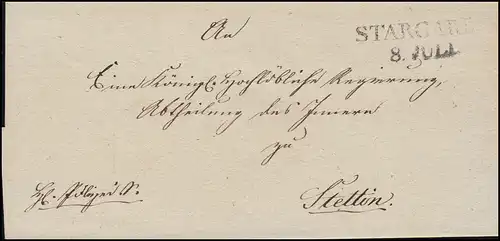 STARGARD
8. JULI
An
Eine Königl. Hochlöbliche Regierung,
Abtheilung des Innern
zu
Stettin.